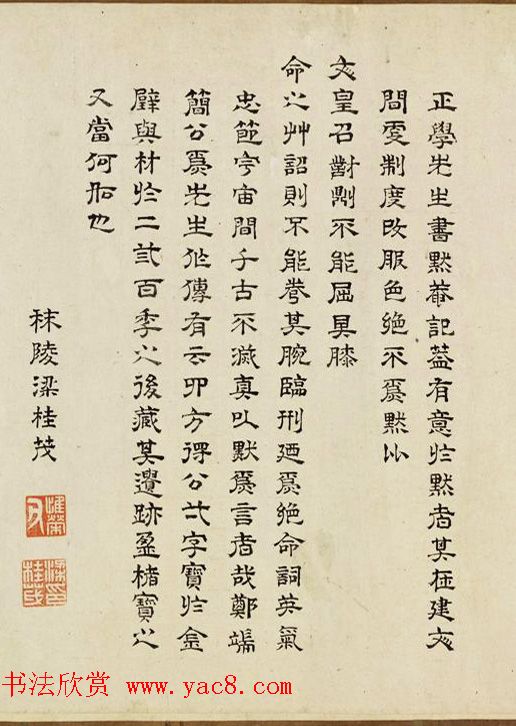 正學先生書默菴記蓋有意於默者其在建文
間更制度改服色絕不爲默比
文皇召對則不能屈其膝
命之艸詔則不能卷其腕臨刑迺爲絕命詞英氣
忠節宇宙間千古不滅真以默爲言者哉鄭端
簡公爲先生作傳有云四方得公弌字寶於金
璧與材於二弎百季之後藏其遺跡盈楮寶之
又當何如也
秣陵梁桂茂
梁印桂茂
书法欣赏 www.yac8.com